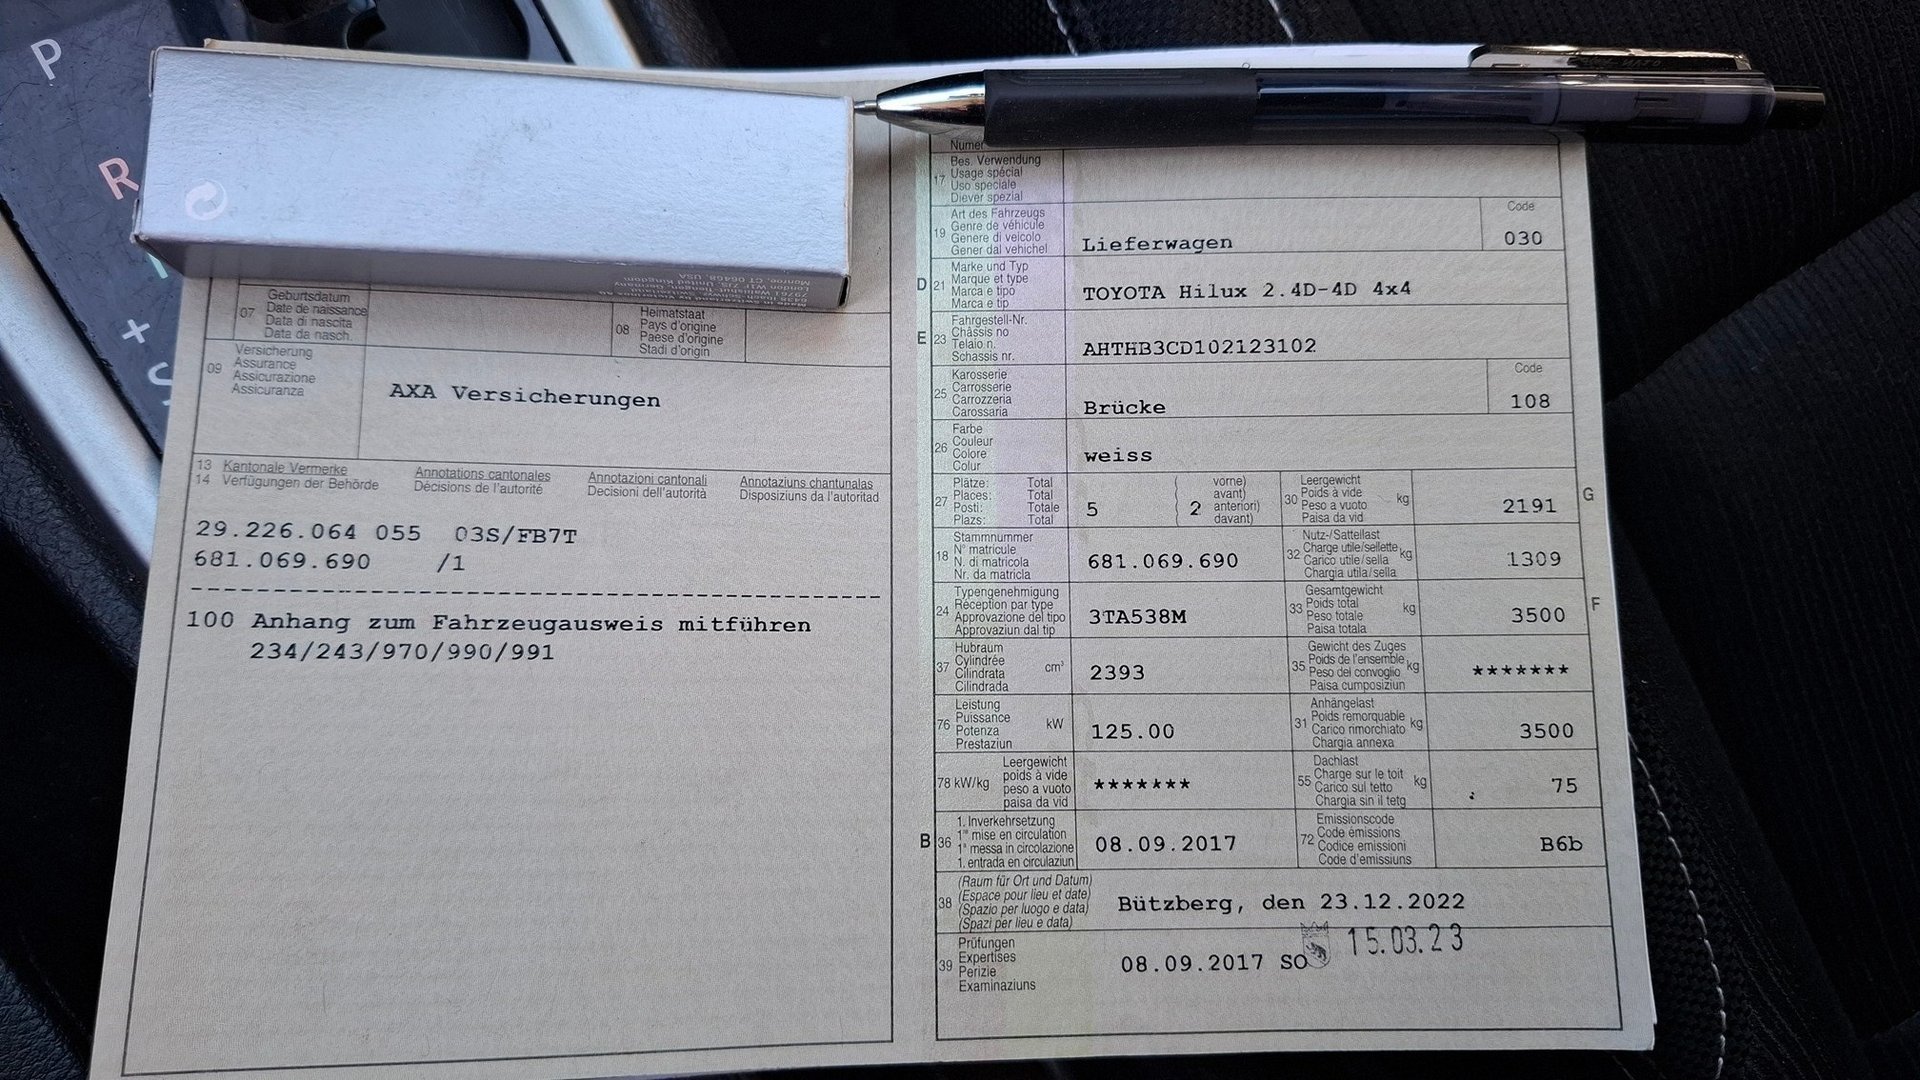 P
R
+
S
Monroe, CT 06468, USA
07
Geburtsdatum
Date de naissance
Data di nascita
Data da nasch.
08
Heimatstaat
Pays d'origine
Paese d'origine
Stadi d'origin
09
Versicherung
Assurance
Assicurazione
Assicuranza
AXA Versicherungen
13 Kantonale Vermerke Annotations cantonales Annotazioni cantonali Annotaziuns chantunalas
14 Verfügungen der Behörde Décisions de l'autorité Decisioni dell'autorità Disposiziuns da l'autoritad
29.226.064 055 03S/FB7T
681.069.690 /1
100 Anhang zum Fahrzeugausweis mitführen
234/243/970/990/991
Numer
17
Bes. Verwendung
Usage spécial
Uso speciale
Diever spezial
19
Art des Fahrzeugs
Genre de véhicule
Genere di veicolo
Gener dal vehichel
Lieferwagen
Code
030
D 21
Marke und Typ
Marque et type
Marca e tipo
Marca e tip
TOYOTA Hilux 2.4D-4D 4x4
E 23
Fahrgestell-Nr.
Châssis no
Telaio n.
Schassis nr.
AHTHB3CD102123102
25
Karosserie
Carrosserie
Carrozzeria
Carossaria
Brücke
Code
108
26
Farbe
Couleur
Colore
Colur
weiss
27
Plätze: Total
Places: Total
Posti: Totale
Plazs: Total
5
2
vorne)
avant)
anteriori)
davant)
30
Leergewicht
Poids à vide
Peso a vuoto
Paisa da vid
kg
2191
G
18
Stammnummer
N° matricule
N. di matricola
Nr. da matricla
681.069.690
32
Nutz-/Sattellast
Charge utile/sellette
Carico utile/sella
Chargia utila/sella
kg
1309
24
Typengenehmigung
Réception par type
Approvazione del tipo
Approvaziun dal tip
3TA538M
33
Gesamtgewicht
Poids total
Peso totale
Paisa totala
kg
3500
F
37
Hubraum
Cylindrée
Cilindrata
Cilindrada
cm³
2393
35
Gewicht des Zuges
Poids de l'ensemble
Peso del convoglio
Paisa cumposiziun
kg
*******
76
Leistung
Puissance
Potenza
Prestaziun
kW
125.00
31
Anhängelast
Poids remorquable
Carico rimorchiato
Chargia annexa
kg
3500
78 kW/kg
Leergewicht
poids à vide
peso a vuoto
paisa da vid
*******
55
Dachlast
Charge sur le toit
Carico sul tetto
Chargia sin il tetg
kg
75
B 36
1. Inverkehrsetzung
1re mise en circulation
1a messa in circolazione
1. entrada en circulaziun
08.09.2017
72
Emissionscode
Code émissions
Codice emissioni
Code d'emissiuns
B6b
38
(Raum für Ort und Datum)
(Espace pour lieu et date)
(Spazio per luogo e data)
(Spazi per lieu e data)
Bützberg, den 23.12.2022
39
Prüfungen
Expertises
Perizie
Examinaziuns
08.09.2017 SO
15.03.23